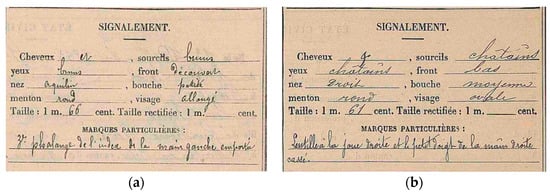 SIGNALEMENT.
Cheveux et , sourcils bruns
yeux bruns , front découvert
nez aquilin , bouche petite
menton rond , visage allongé
Taille : 1 m. 66 cent. Taille rectifiée : 1 m. cent.
MARQUES PARTICULIÈRES :
phalange de l'index de la main gauche emportée
(a)
SIGNALEMENT.
Cheveux & , sourcils châtains
yeux châtains , front bas
nez droit , bouche moyenne
menton rond , visage ovale
Taille : 1 m. 61 cent. Taille rectifiée : 1 m. cent.
MARQUES PARTICULIÈRES :
Lentille à la joue droite et le petit doigt de la main droite
cassé.
(b)